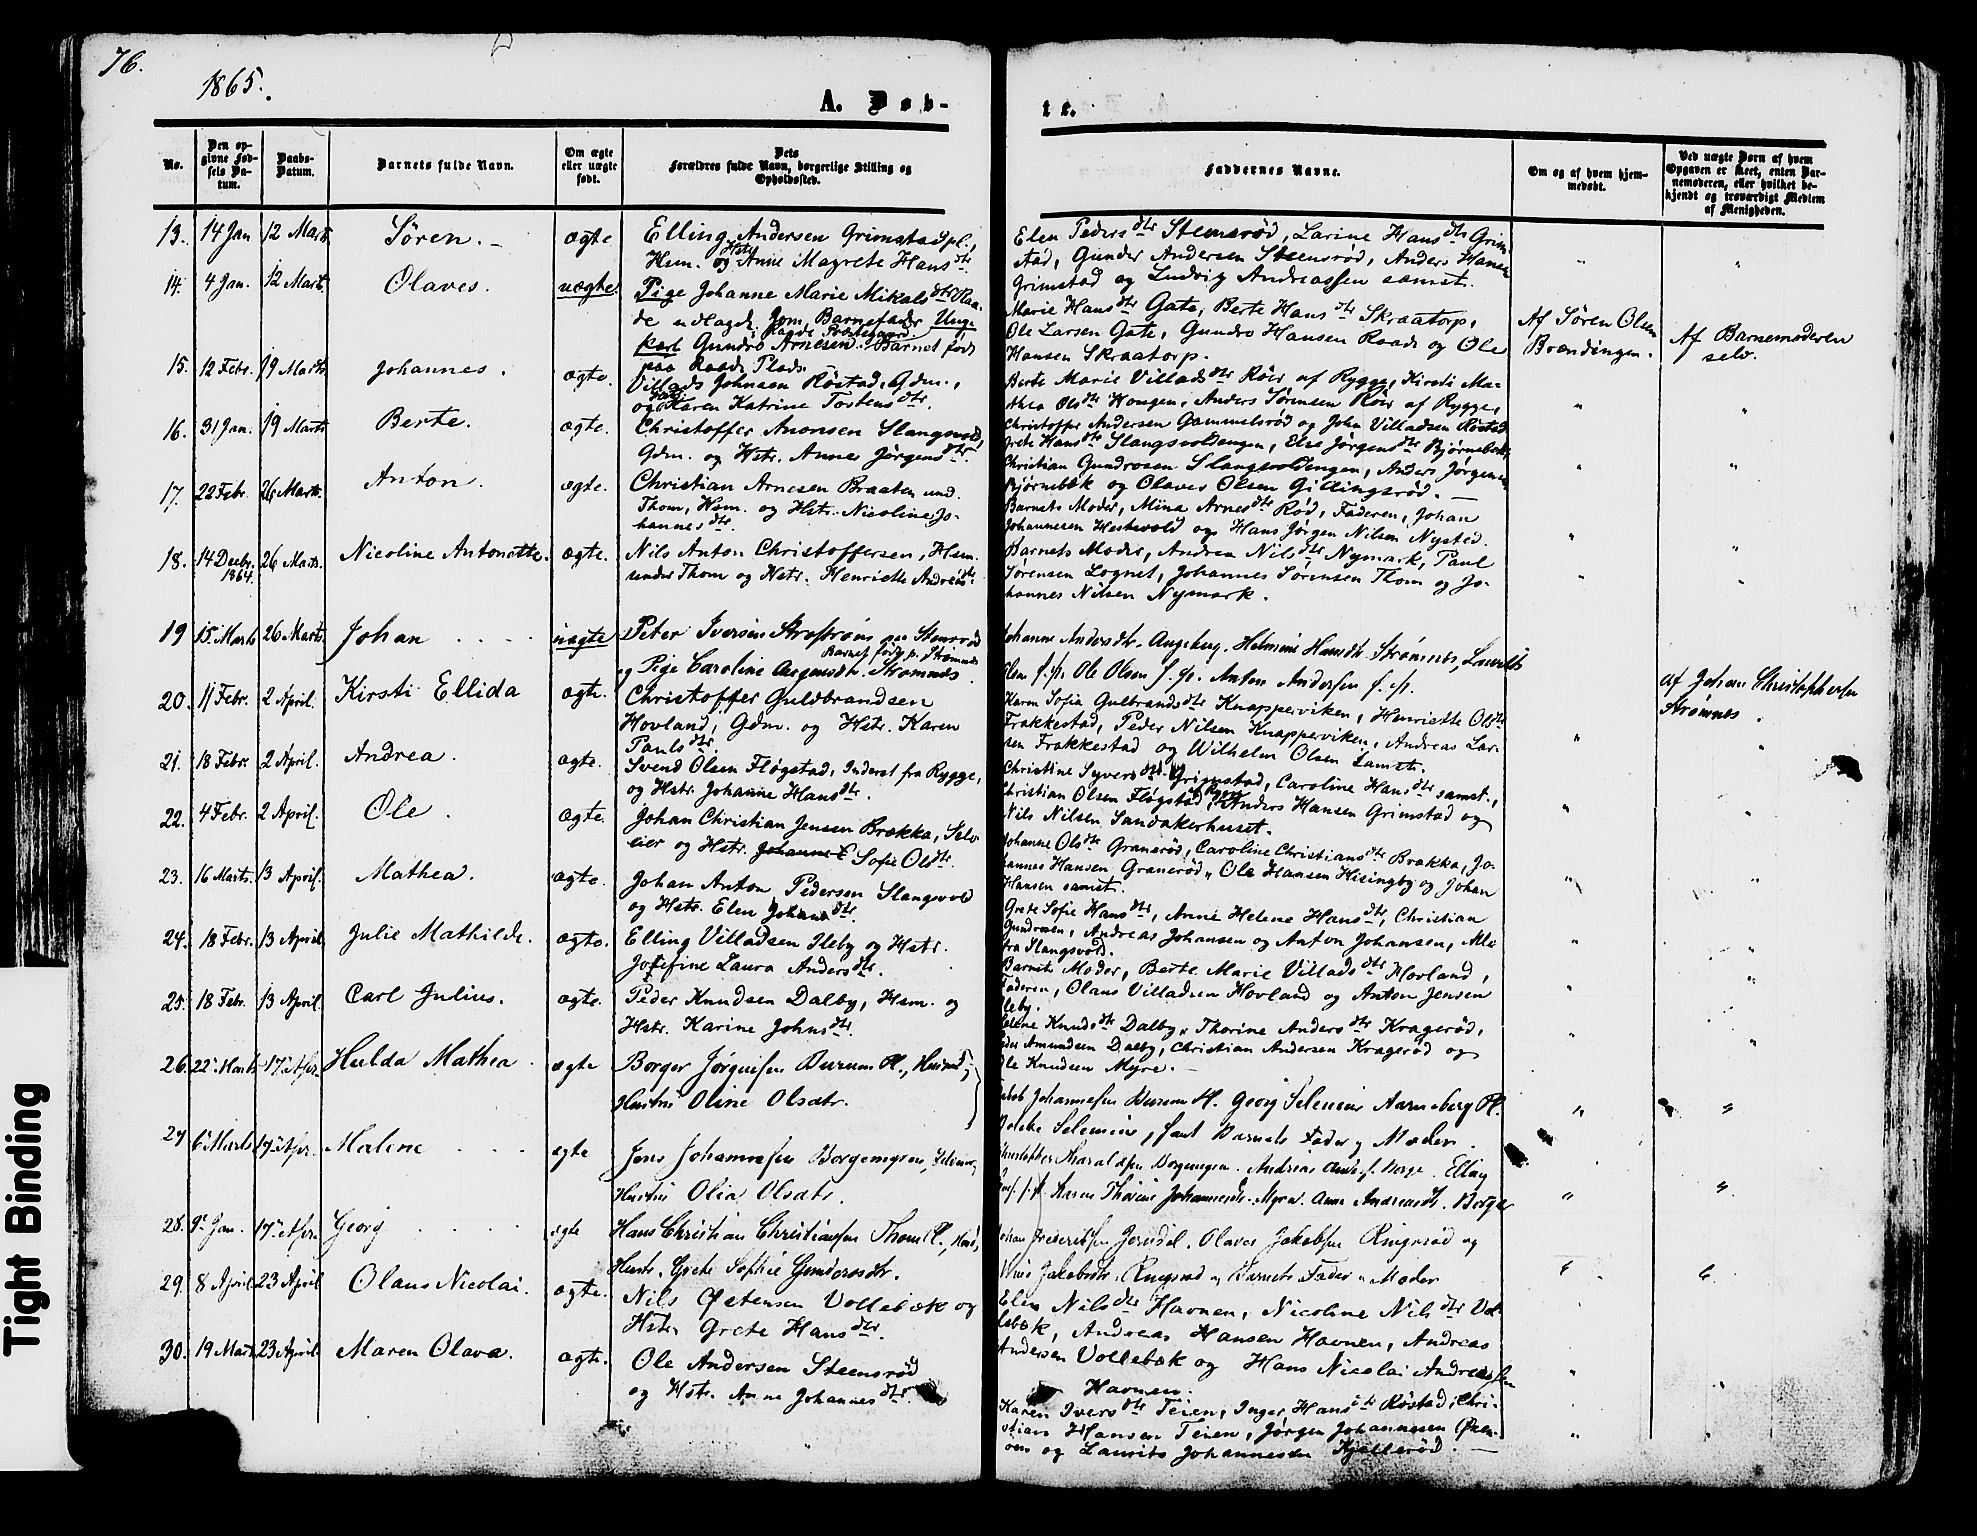 76.
1865.
A. Døb-
te.
No.
Den op-
givne Fød-
sels Da-
tum.
Daabs-
Datum.
Barnets fulde Navn.
Om ægte
eller uægte
født.
Dets
Forældres fulde Navn, borgerlige Stilling og
Opholdssted.
Faddernes Navne.
Om og af hvem hjem-
medøbt.
Ved uægte Børn af hvem
Opgaven er skeet, enten Bar-
nemoderen, eller hvilket be-
kjendt og troværdigt Medlem
af Menigheden.
13. 14 Jan 12 Marts Søren. ægte Elling Andersen Grimstadpl.,
Hsm. og Hstr. Anne Magrete Hansdtr.
Elen Pedersdtr Steensrød, Larine Hansdtr Grim-
stad, Gunder Andersen Steensrød, Anders Hansen
Grimstad og Ludvig Andreassen samst.
14. 4 Jan. 12 Marts. Olaves. uægte Pige Johanne Marie Mikalsdtr Raa-
de udlagde som Barnefader Unge-
karl Gundro Arnesen. Barnet født
paa Raade Plads.
Marie Hansdtr Gate, Berte Hansdtr Skraatorp,
Ole Larsen Gate, Gundro Hansen Raade og Ole
Hansen Skraatorp.
Af Søren Olsen
Brændingen.
Af Barnemoderen
selv.
15. 12 Febr. 19 Marts Johannes. ægte. Villads Johnsen Røstad, Gdm.,
og Hstr. Karen Katrine Torstensdtr.
Berte Marie Villadsdtr Röer af Rygge, Kirsti Ma-
thea Olsdtr Hougen, Anders Sørensen Röer af Rygge,
Christoffer Andersen Gammelsrød og John Villadsen Røstad
16. 31 Jan. 19 Marts Berte. ægte. Christoffer Anonsen Slangsvold,
Gdm. og Hstr. Anne Jørgensdtr.
Grete Hansdtr Slangsvoldengen, Else Jørgensdtr Bjørnebæk,
Christian Gundrosen Slangsvoldengen, Anders Jørgensen
Bjørnebæk og Olaves Olsen Gillingsrød.
17. 22 Febr. 26 Marts. Anton. ægte. Christian Arnesen Braaten und.
Thom, Hsm. og Hstr. Nicoline Jo-
hannesdtr.
Barnets Moder, Mina Arnesdtr Rød, Faderen, Johan
Johannesen Hestevold og Hans Jørgen Nilsen Nysted.
18. 14 Decbr. 1864. 26 Marts. Nicoline Antonette. ægte. Nils Anton Christoffersen, Hsm.
under Thom og Hstr. Henriette Andreasdtr.
Barnets Moder, Andrea Nilsdtr Nymark, Paul
Sørensen Lognet, Johannes Sørensen Thom og Jo-
hannes Nilsen Nymark.
19 15 Marts 26 Marts. Johan uægte Peter Iversen
Barnet født p. Strømnes
og Pige Caroline Strømnes.
Johanne Andersdtr. Augeberg, Helmine Hansdtr. Strømnes,
Ole Olsen Anton Andersen
af Johan Christophersen
Strømnes.
20. 11 Febr. 2 April. Kirsti Ellida ægte. Christoffer Guldbrandsen
Hovland, Gdm. og Hstr. Karen
Paulsdtr.
Karen Sofia Gulbrandsdtr Knapperviken, Henriette Olsdtr
Frakkestad, Peder Nilsen Knapperviken, Andreas Lar-
sen Frakkestad og Wilhelm Olsen samst.
21. 18 Febr. 2 April. Andrea. ægte. Svend Olsen Fløgstad, Inderst fra Rygge,
og Hstr. Johanne Hansdtr.
Christine Syversdtr Grimstad, Caroline Hansdtr samst.,
Christian Olsen Fløgstad af Rygge, Anders Hansen Grimstad og
Nils Nilsen Sandakerhuset.
22. 4 Febr. 2 April. Ole. ægte. Johan Christian Jensen Brækka, Selv-
eier og Hstr. Sofie Olsdtr.
Johanne Olsdtr Granerød, Caroline Christiansdtr Brækka, Jo-
hannes Hansen Granerød, Ole Hansen Hisingby og Johan
Hansen samst.
23. 16 Marts. 13 April. Mathea. ægte. Johan Anton Pedersen Slangsvold
og Hstr. Elen Johansdtr.
Grete Sofie Hansdtr, Anne Helene Hansdtr, Christian
Gundrosen, Andreas Johansen og Anton Johansen, Alle
fra Slangsvold.
24. 18 Febr. 13 April Julie Mathilde. ægte. Elling Villadsen Ileby og Hstr.
Josefine Laura Andersdtr.
Barnets Moder, Berte Marie Villadsdtr Hovland,
Faderen, Olaus Villadsen Hovland og Anton Jensen
Ileby.
25. 18 Febr. 13 April. Carl Julius. ægte. Peder Knudsen Dalby, Hsm. og
Hstr. Karine Johnsdtr.
Helene Knudsdtr Dalby, Thorine Andersdtr Kragerød,
Peder Amundsen Dalby, Christian Andersen Kragerød og
Ole Knudsen Myre.
26. 22 Marts 17 Apr. Hulda Mathea ægte Borger Jørgensen Burum Pl., Husmd.,
Hustru Oline Olsdtr.
Johannesen Burum Pl. Georg Selenius Aarneberg Pl.
Selenius, samt Barnets Fader og Moder.
27 6 Marts 17 Apr. Malene ægte Jens Johannesen Borgeengen,
Hustru Olia Olsdtr.
Christopher Haraldsen Borgeengen. Andreas Borge. Elling
Karen Thorine Johannesdtr. Myra. Anne Andreasdtr. Borge
28. 9 Jan. 17 Apr. Georg ægte Hans Christian Christiansen Thom Pl.,
Hustr. Grete Sophie Gundersdtr.
Johan Fredericksen Olaves Jakobsen Ringsrød og
Jakobsdtr. Ringsrød og Barnets Fader og Moder
29. 8 April 23 April Olaus Nicolai. ægte. Nils Østensen Vollebæk og
Hstr. Grete Hansdtr.
Elen Nilsdtr Havnen, Nicoline Nilsdtr Vol-
lebæk, Andreas Hansen Havnen, Andreas
Andersen Vollebæk og Hans Nicolai Andreassen
Havnen.
30. 19 Marts 23 April. Maren Olava. ægte. Ole Andersen Steensrød
og Hstr. Anne Johannesdtr.
Karen Iversdtr Teien, Inger Hansdtr Røstad, Chri-
stian Hansen Teien, Jørgen Johannesen
og Laurits Johannesen Kjøllerød.
Tight Binding